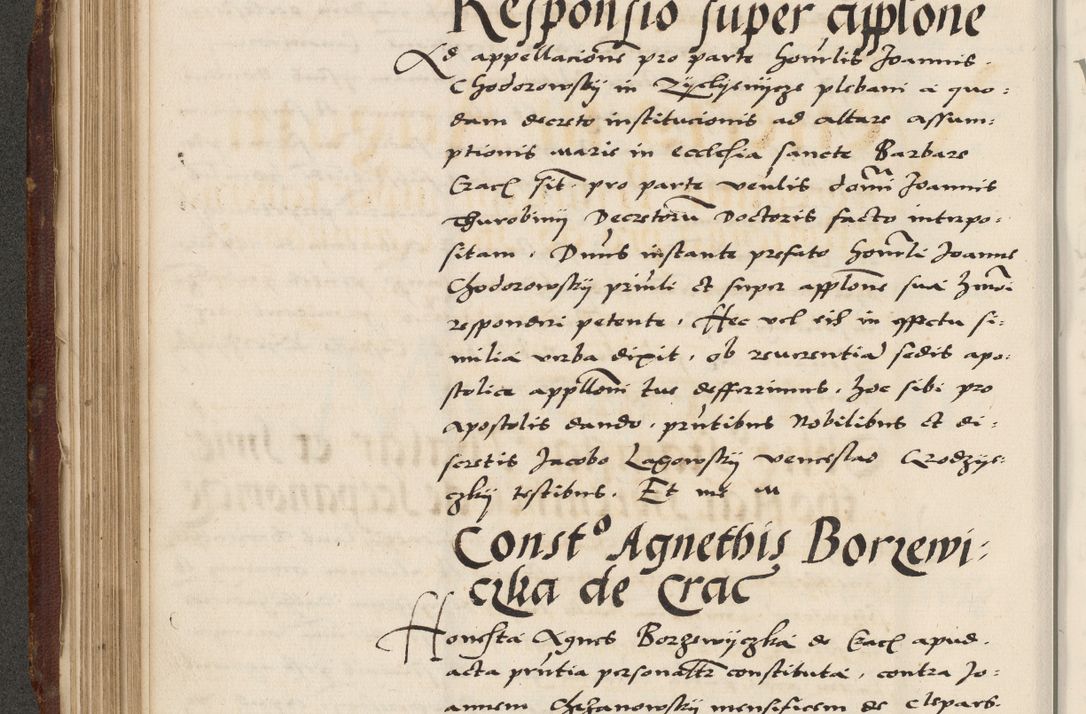 Responsio super applone
Ad appellacionem pro parte honorlis Joannis
Chodorowskij in Zyelyenijcze plebani a quo:
dam decreto institucionis ad altare assum:
ptionis marie in ecclesia sancte Barbare
Crac sit. pro parte venlis domi Joannis
Thurobinij Decretorum Doctoris facto interpo:
sitam. Dnus instante prefato honorli Joanne
Chodorowskij prnti et super applone sua hmoi
responderi petente. Hec vel eis in effectu si:
milia verba dixit. ob reverentia sedis apo:
stolice applloni tue defferimus. hoc sibi pro
apostolis dando. prntibus Nobilibus et di:
scretis Jacobo Lagowskij venceslao Grodzye:
czkij testibus. Et me
Const° Agnethis Borzewi:
czka de Crac
Honesta Agnes Borzewyczka de Crac apud
acta prntia personalr constituta. contra Jo:
annem Chrzanowskij mensificem de Clepars